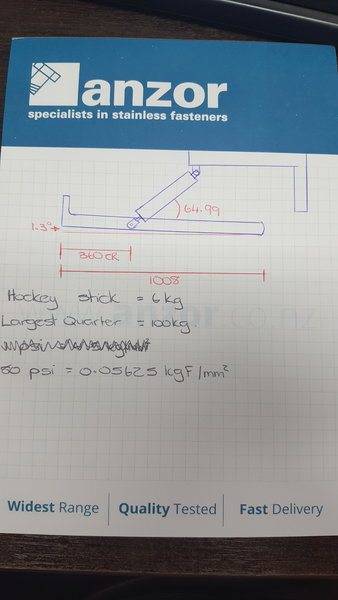 anzor
specialists in stainless fasteners
64.99
1.3°
360 CR
1008
Hockey stick = 6 kg
Largest Quarter = 100kg
80 psi = 0.05625 kgF/mm²
Widest Range Quality Tested Fast Delivery